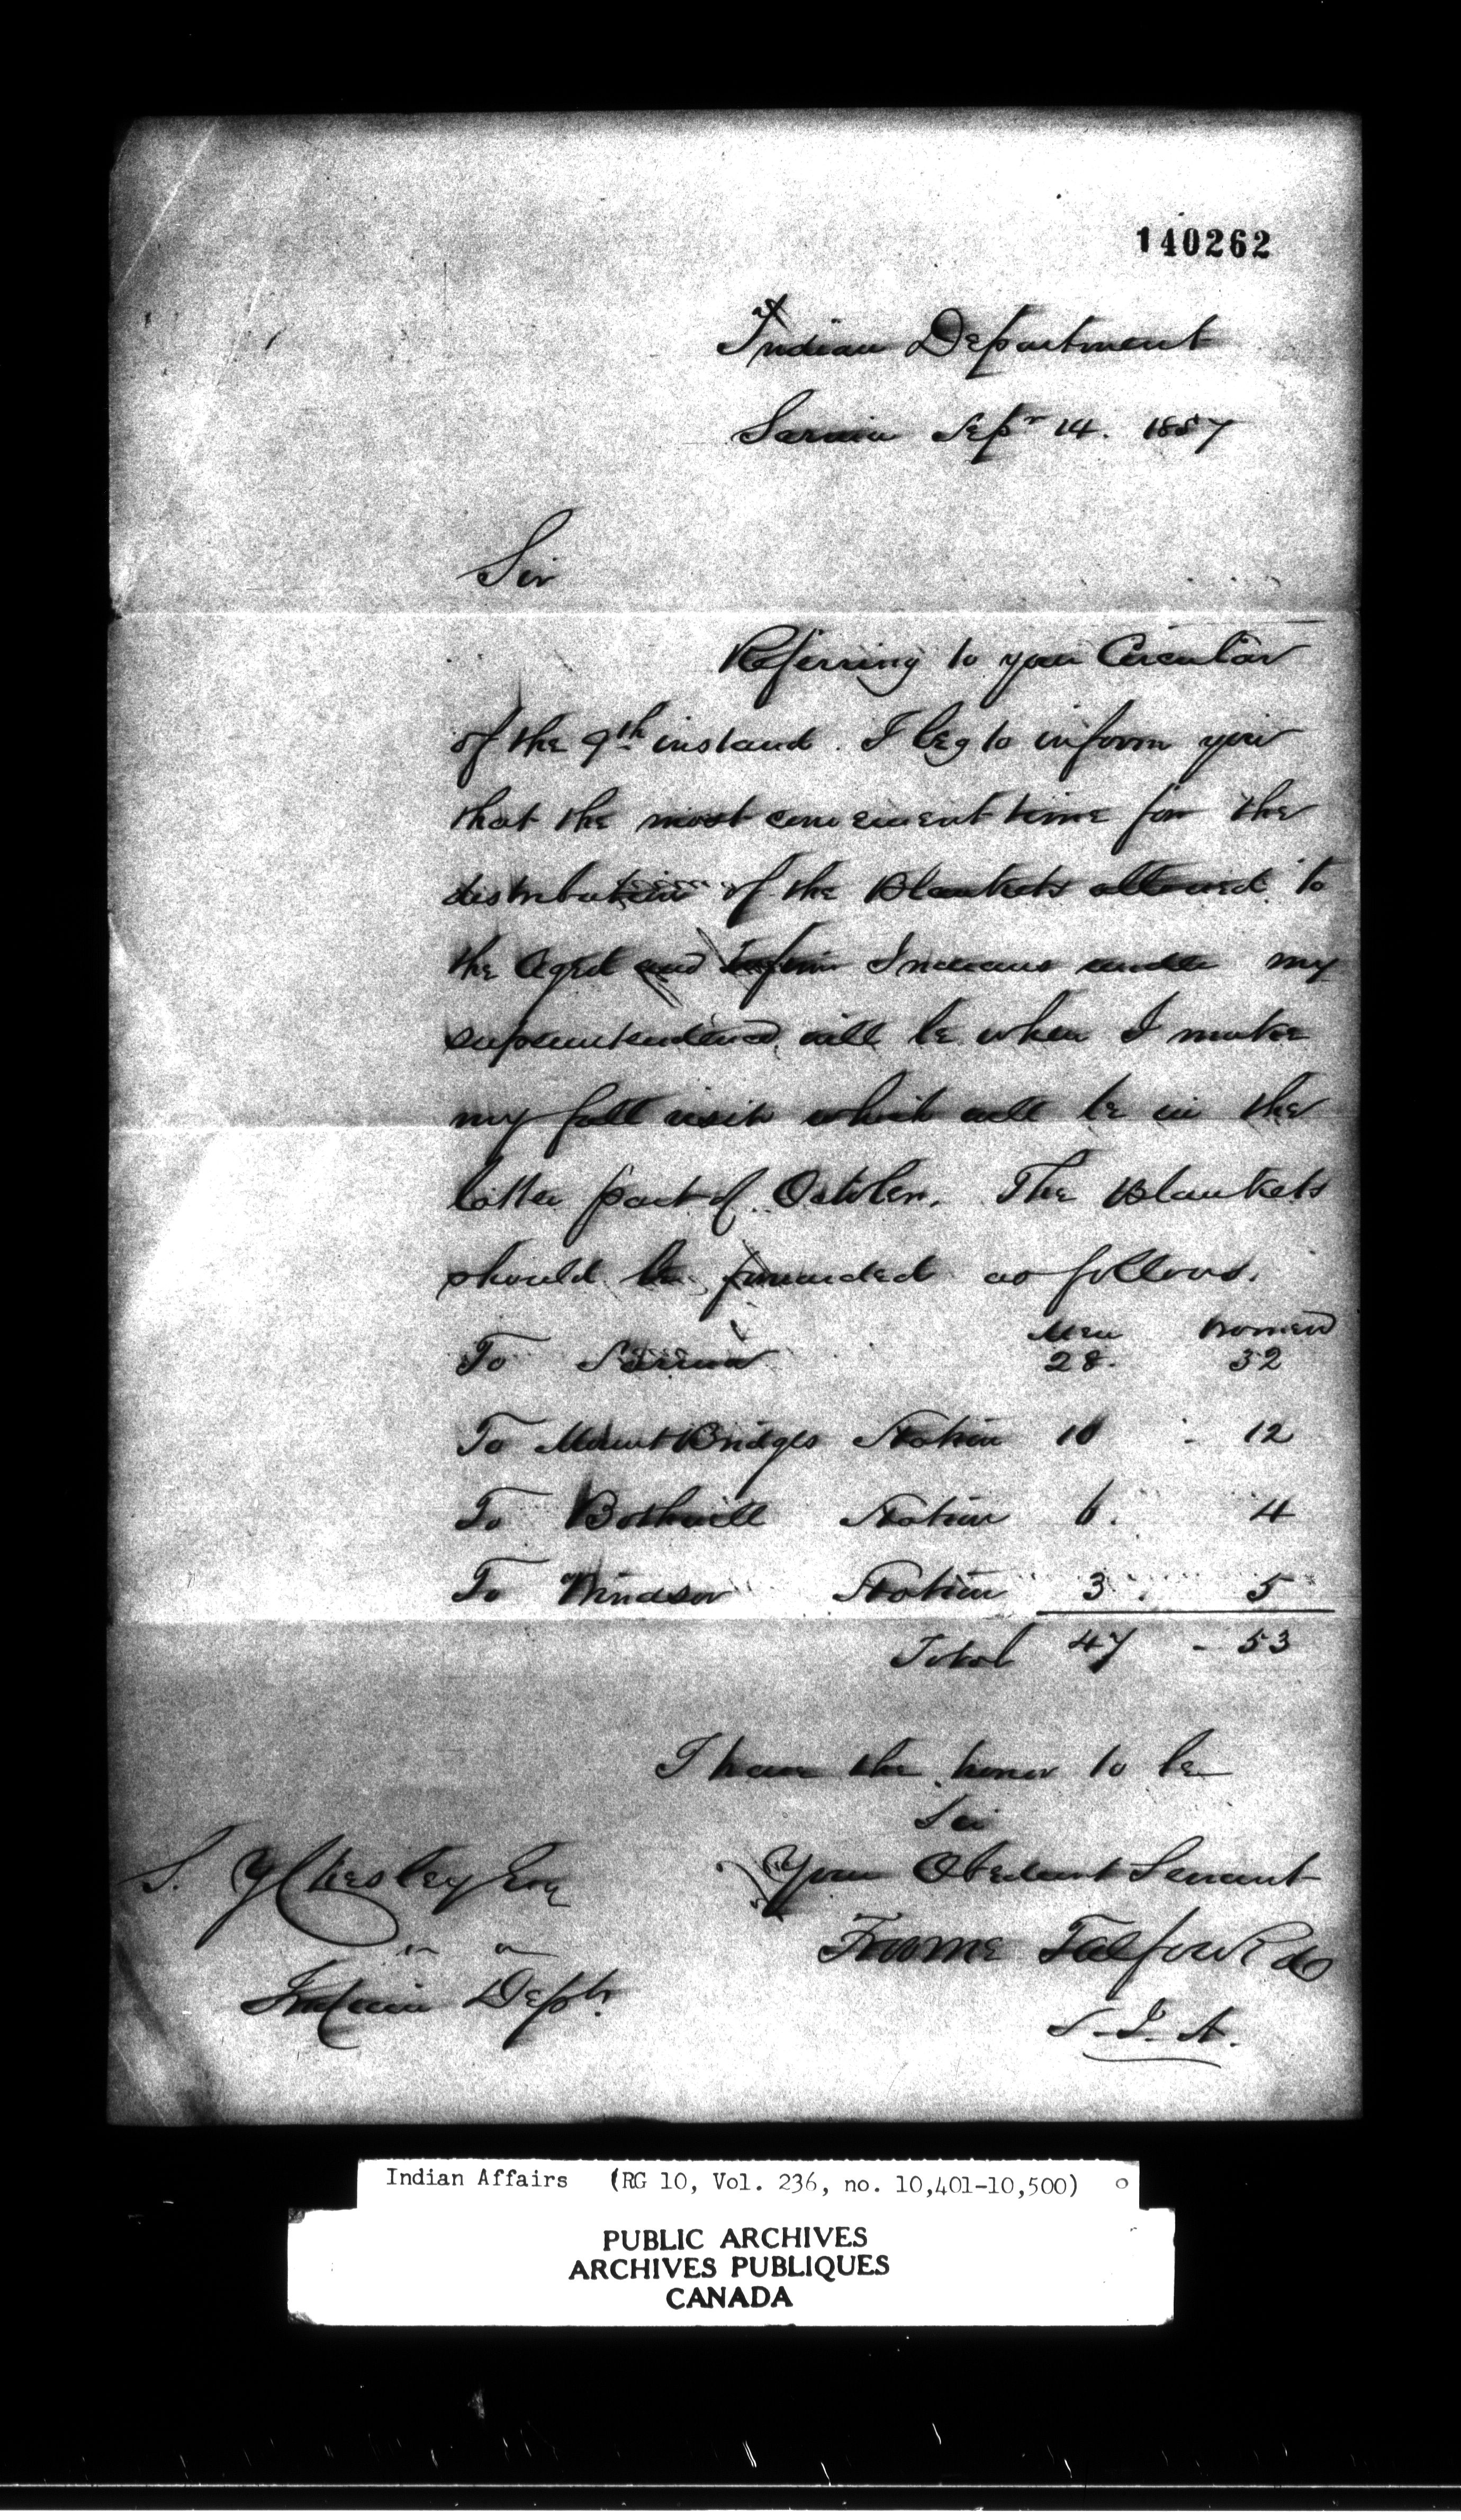 140262
Indian Department
Sarnia Sepr 14. 1857
Sir
Referring to your Circular
of the 9th instand. I beg to inform you
that the most convenient time for the
distribution of the Blankets allowed to
the Aged and Infirm Indians under my
superintendence will be when I make
my fall visit which will be in the
latter part of October. The Blankets
should be forwarded as follows.
Men Women
To Sarnia 28. 32
To Mount Bridges Station 10 - 12
To Bothwell Station 6. 4
To Windsor Station 3. 5
Total 47 - 53
I have the honor to be
Sir
Your Obedient Servant
Froome Talfourd
S. I. A.
S. Y Chesley Esq
Indian Dept.
Indian Affairs (RG 10, Vol. 236, no. 10,401-10,500)
PUBLIC ARCHIVES
ARCHIVES PUBLIQUES
CANADA